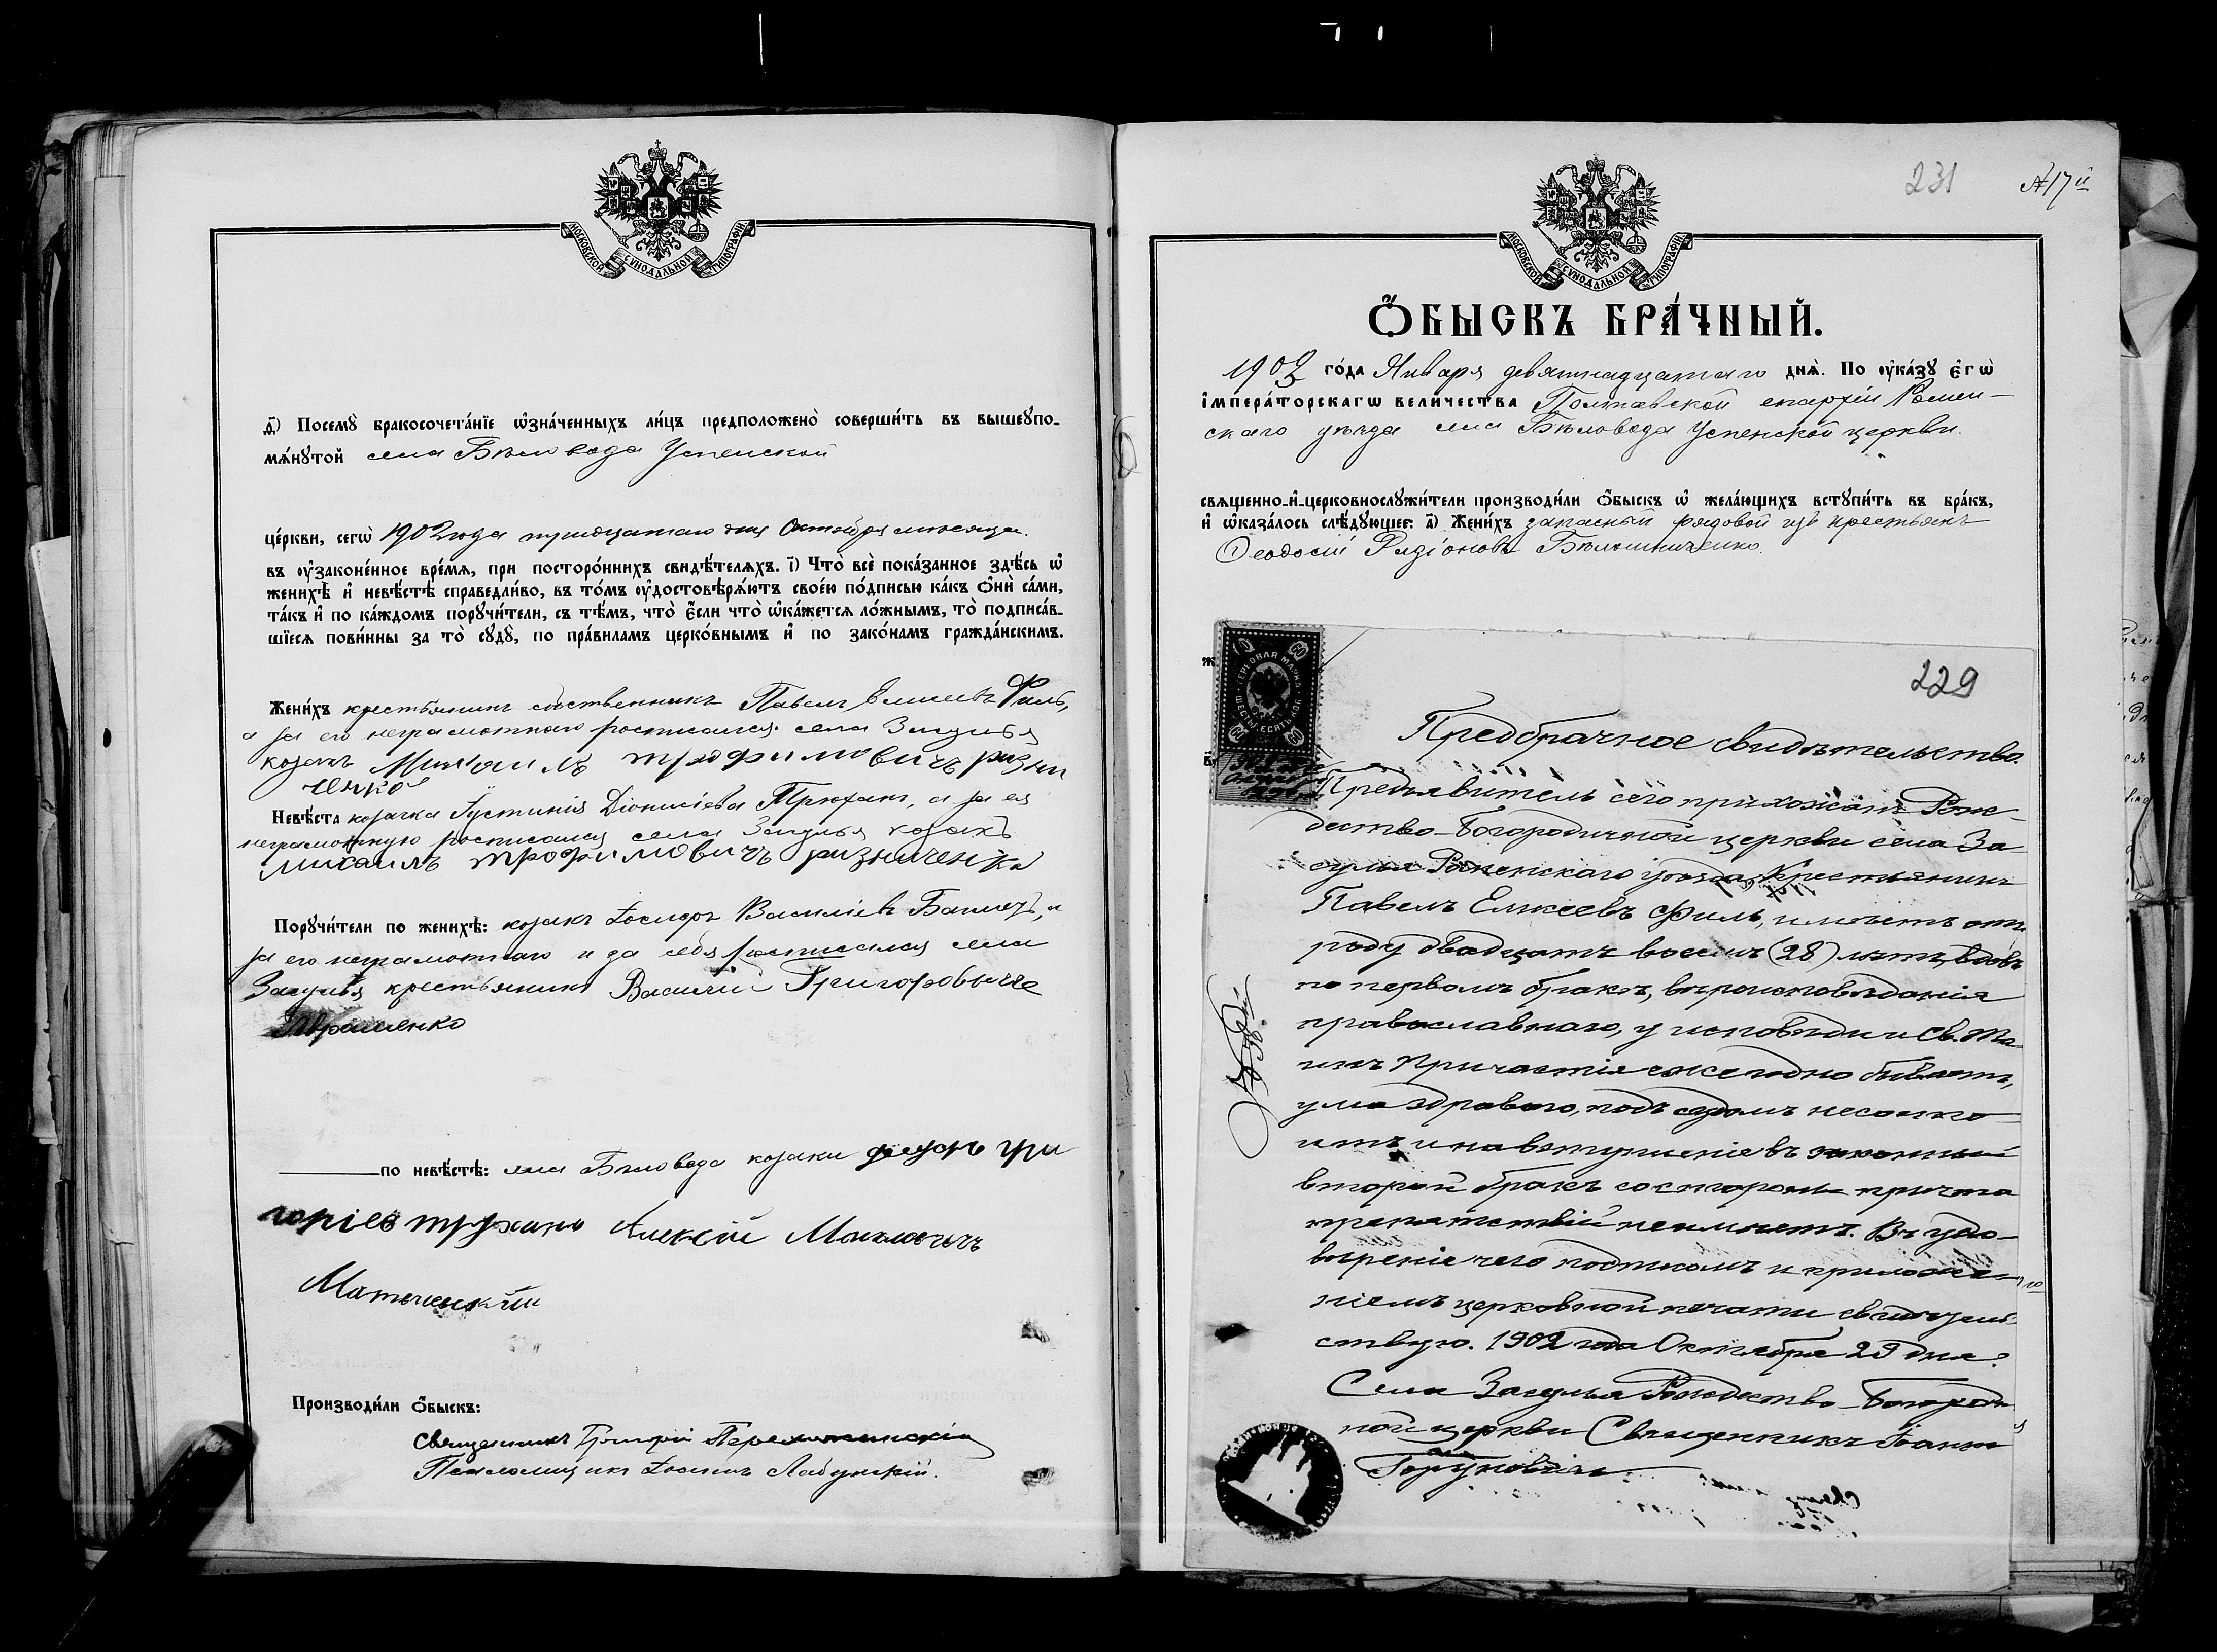 МОСКОВСКОЙ СѴНОДАЛЬНОЙ ТИПОГРАФІИ
Посемꙋ̀ бракосочета́нїе ѡ҆зна́ченныхъ ли́цъ предположено̀ соверши́ть въ вышеꙋпо-
мѧ́нꙋтой села Бѣловода Успенской
це́ркви, сегѡ̀ 1902 года тридцатаго дня Октября мѣсяца
въ ᲂу҆законе́нное вре́мѧ, при посторо́ннихъ свидѣ́телѧхъ. і҃) Что̀ всѐ пока́занное здѣ́сь ѡ҆
женихѣ̀ и҆ невѣ́стѣ справедли́во, въ то́мъ ᲂу҆достовѣрѧ́ютъ свое́ю по́дписью ка́къ ѻ҆нѝ са́ми,
та́къ и҆ по ка́ждомъ порꙋчи́тели, съ тѣ́мъ, что̀ є҆́сли что̀ ѡ҆ка́жетсѧ ло́жнымъ, то̀ подписа́в-
шїесѧ пови́нны за то̀ сꙋдꙋ̀, по пра́виламъ церко́внымъ и҆ по зако́намъ гражда́нскимъ.
Жени́хъ крестьянинъ собственникъ Павелъ Елисеевъ Филь,
а за его неграмотнаго росписался села Засулья
козакъ Михаилъ трофимовичъ ризни
ченко
Невѣ́ста козачка Іустинія Діонисіева Трюхан, а за ея
неграмотную росписался села Засулья козакъ
михаилъ трофимовичъ ризниченко
Порꙋчи́тели по женихѣ̀: козакъ Іосифъ Василіевъ , а
за его неграмотнаго и за себя росписался села
Засулья крестьянинъ Василій Григоровычъ
по невѣ́стѣ: села Бѣловода козаки федоръ гри
горіев трухано Алексій
Производи́ли ѻ҆́быскъ:
Священникъ Григорій
Псаломщикъ Іосифъ Лабунскій.
231 №17й
МОСКОВСКОЙ СѴНОДАЛЬНОЙ ТИПОГРАФІИ
Ѻ҆́БЫСКЪ БРА́ЧНЫЙ.
1903 го́да Января девятнадцатаго днѧ̀. По ᲂу҆ка́зꙋ є҆гѡ̀
і҆мпера́торскагѡ вели́чества Полтавской епархіи Ромен-
скаго уѣзда села Бѣловода Успенской церкви.
свѧщенно-и҆-церковнослꙋжи́тели производи́ли ѻ҆́быскъ ѡ҆ жела́ющихъ встꙋпи́ть въ бра́къ,
и҆ ѡ҆каза́лось слѣ́дꙋющее: а҃) Жени́хъ запасный рядовой изъ крестьянъ
Ѳеодосій Родіоновъ
229
ГЕРБОВАЯ МАРКА
ШЕСТЬДЕСЯТЪ КОП.
60
Предбрачное свидѣтельство
Предъявитель сего прихожанъ Рож-
дество-Богородичной церкви села За-
сулья Роменскаго уѣзда, Крестьянинъ
Павелъ Елисеевъ Филь, имѣетъ отъ
роду двадцать восемь (28) лѣтъ, вдовъ
по первомъ бракѣ, вѣроисповѣданія
православнаго, у исповѣди и Св. Та-
инъ Причастія ежегодно бываетъ,
ума здраваго, подъ судомъ не состо-
итъ и на вступленіе въ законный
второй бракъ со стороны причта
препятствій не имѣетъ. Въ удо-
вѣреніе чего подписомъ и приложе-
ніемъ церковной печати свидѣтель-
ствую. 1902 года Октября 29 дня.
Села Засулья Рождество-Богороди-
ной церкви Священникъ Іоаннъ